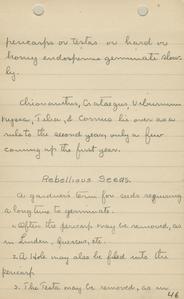 pericarps or testas or hard or
horney endosperms germinate slow-
ly.
Chionanthus, Crataegus, Viburnum
Nyssa, Tilia, & Cornus lie over as a
rule to the second year, only a few
coming up the first year.
Rebellious Seeds.
A gardner's term for seeds requiring
a long time to germinate.
1. Often the pericarp may be removed, as
in Linden, Quercus, etc.
2. A Hole may also be filed into the
pericarp
3. The Testa may be removed, as in
46